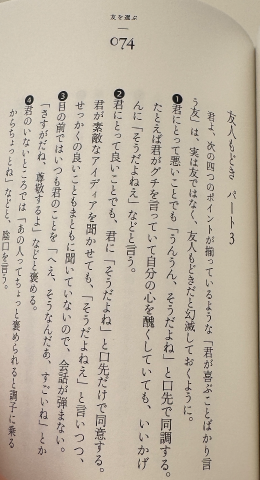 友を選ぶ
074
友人もどき パート3
君よ、次の四つのポイントが揃っているような「君が喜ぶことばかり言
う友」は、実は友ではなく、友人もどきだと幻滅しておくように。
❶君にとって悪いことでも「うんうん、そうだよね」と口先で同調する。
たとえば君がグチを言っていて自分の心を醜くしていても、いいかげ
んに「そうだよねえ」などと言う。
❷君にとって良いことでも、君に「そうだよね」と口先だけで同意する。
君が素敵なアイディアを聞かせても、「そうだよねえ」と言いつつ、
せっかくの良いこともまともに聞いていないので、会話が弾まない。
❸目の前ではいつも君のことを「へえ、そうなんだあ、すごいね」とか
「さすがだね、尊敬するよ」などと褒める。
❹君のいないところでは「あの人ってちょっと褒められると調子に乗る
からちょっとね」などと、陰口を言う。